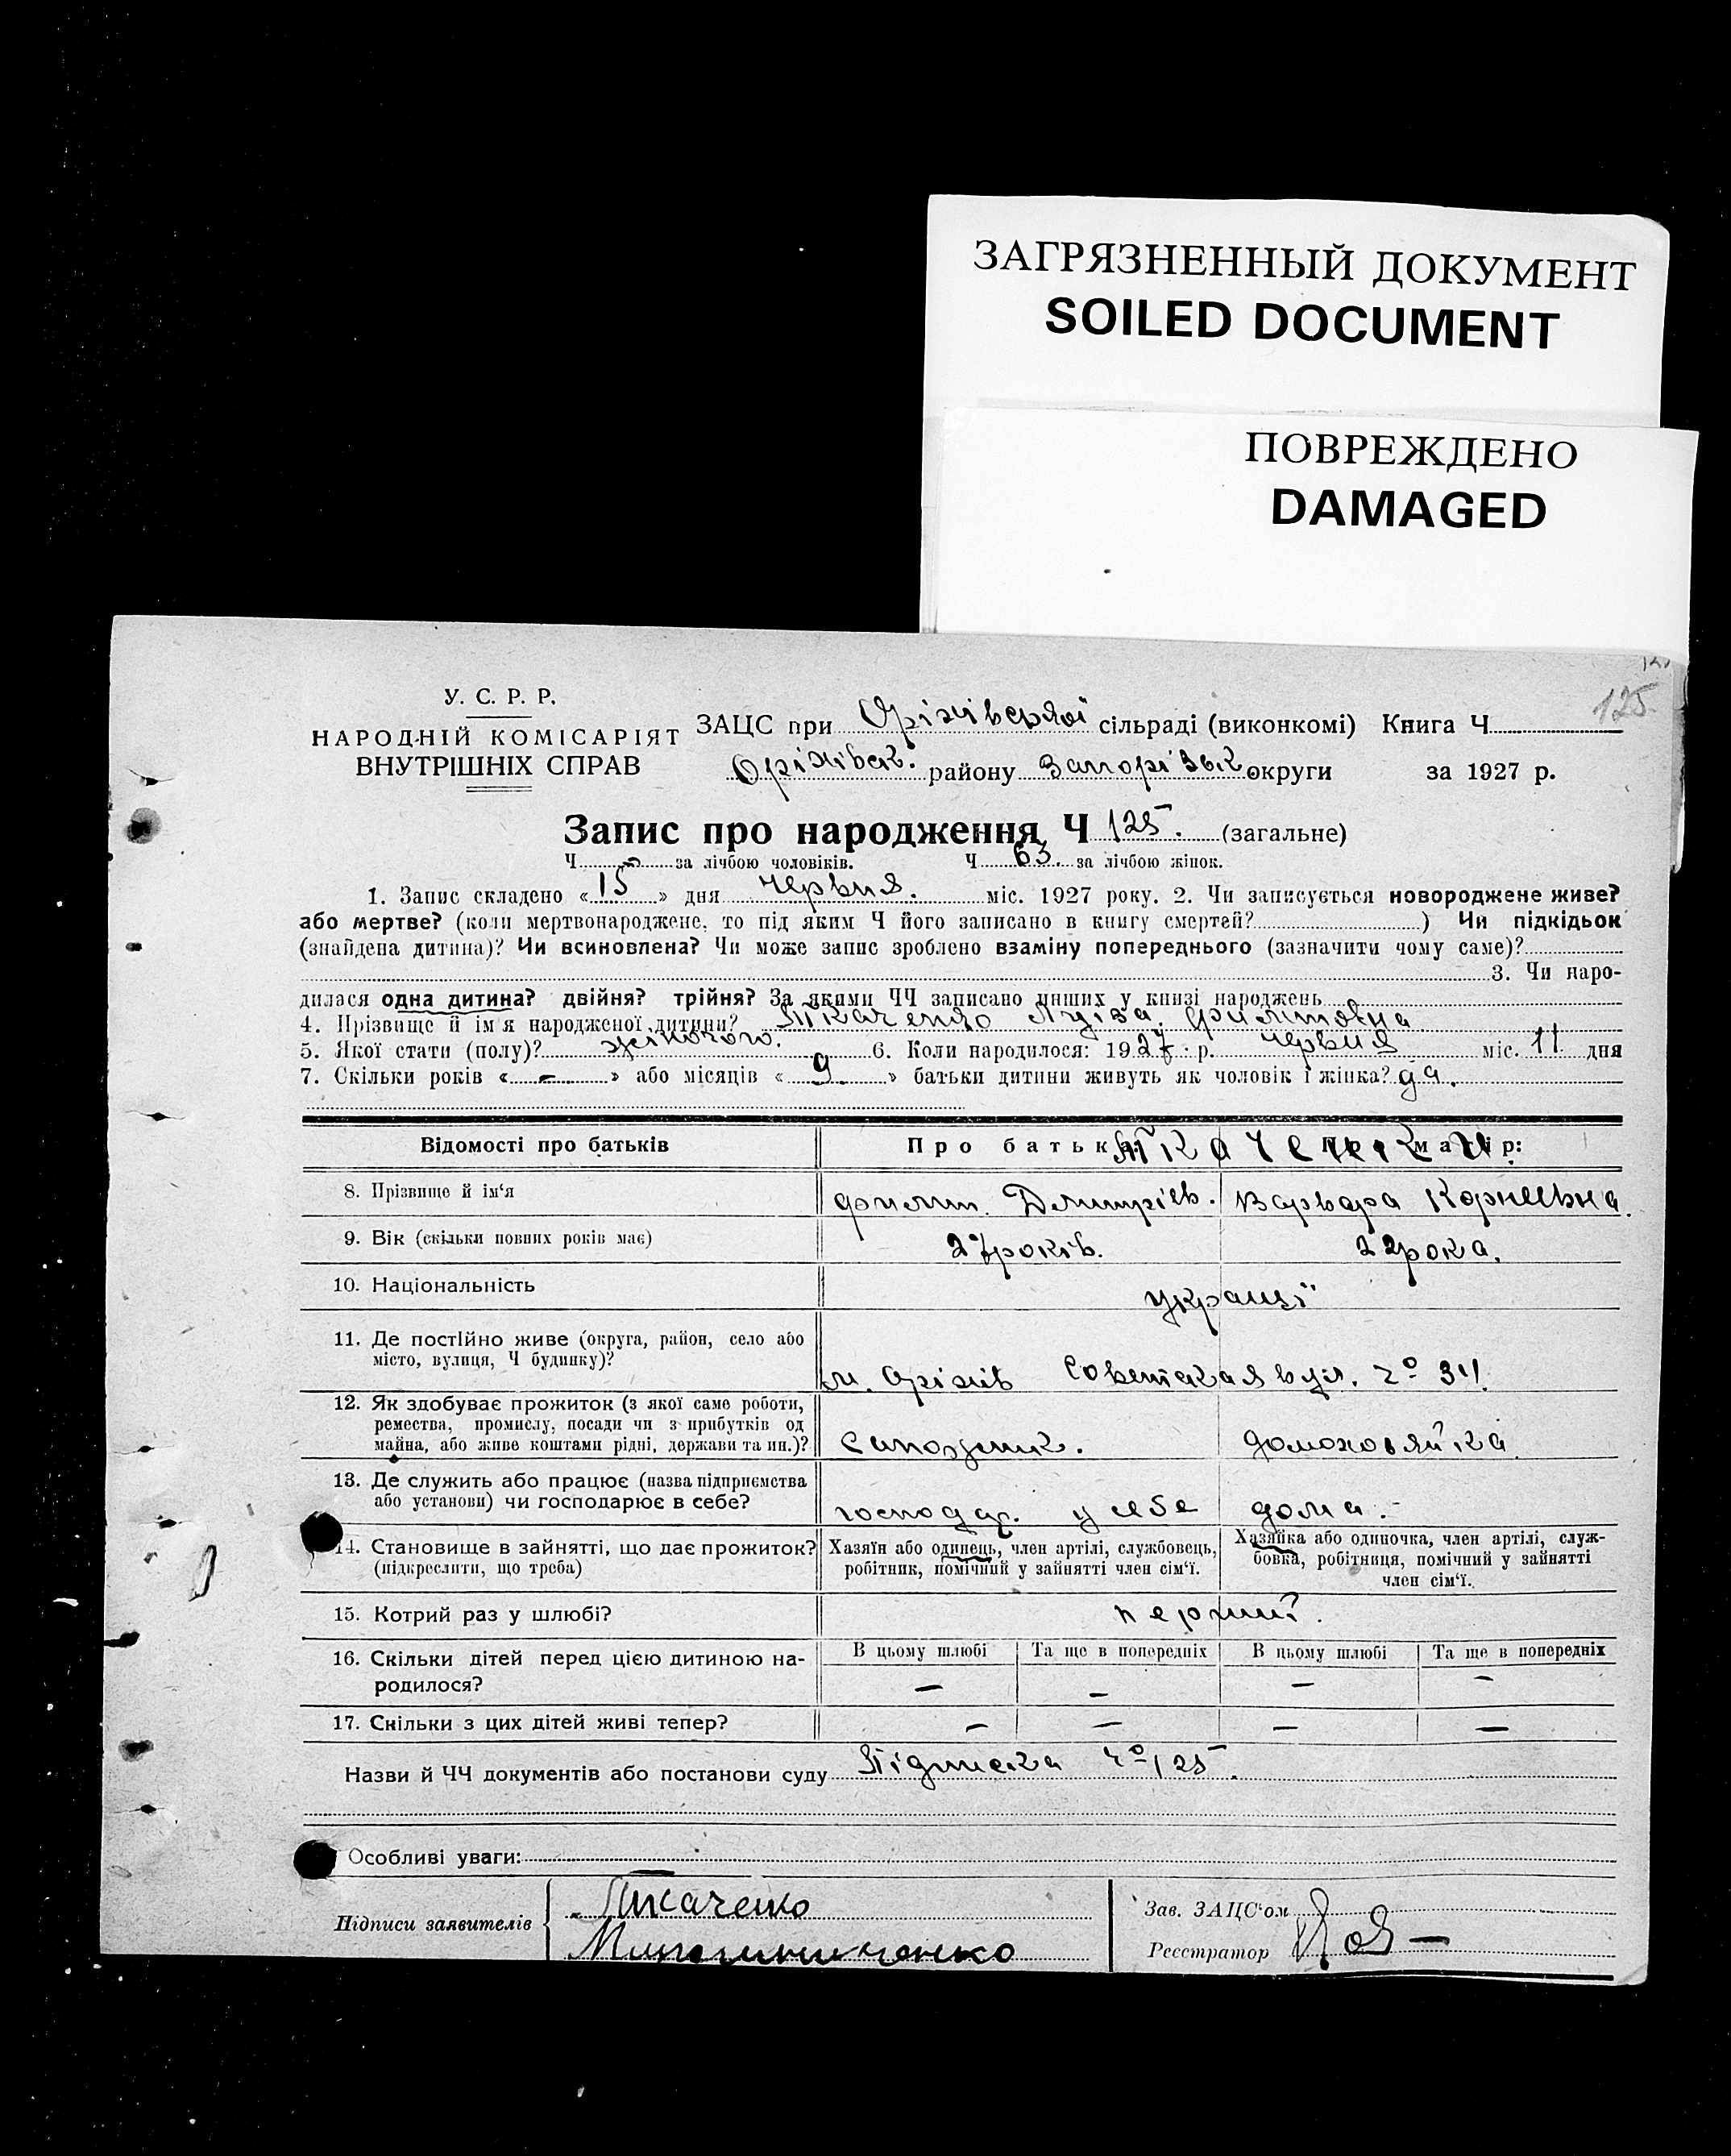 ЗАГРЯЗНЕННЫЙ ДОКУМЕНТ
SOILED DOCUMENT
ПОВРЕЖДЕНО
DAMAGED
125.
У. С. Р. Р.
НАРОДНІЙ КОМІСАРІЯТ
ВНУТРІШНІХ СПРАВ
ЗАЦС при Оріхівській сільраді (виконкомі) Книга Ч
Оріхівск. району Запорізьк округи за 1927 р.
Запис про народження Ч 125. (загальне)
Ч - за лічбою чоловіків. Ч 63. за лічбою жінок.
1. Запис складено «15» дня червня. міс. 1927 року. 2. Чи записується новороджене живе?
або мертве? (коли мертвонароджене, то під яким Ч його записано в книгу смертей? ) Чи підкідьок
(знайдена дитина)? Чи всиновлена? Чи може запис зроблено взаміну попереднього (зазначити чому саме)?
3. Чи наро-
дилася одна дитина? двійня? трійня? За якими ЧЧ записано инших у книзі народжень
4. Прізвище й ім'я народженої дитини? Ткаченко Луіза Филитовна
5. Якої стати (полу)? жіночого. 6. Коли народилося: 1927 р. червня міс. 11 дня
7. Скільки років «-» або місяців «9» батьки дитини живуть як чоловік і жінка? да.
Відомості про батьків
Про батька: Про матір:
Ткаченки
8. Прізвище й ім'я Филит. Дмитріев. Варвара Корнеевна.
9. Вік (скільки повних років має) 27 років. 22 рока.
10. Національність украінці
11. Де постійно живе (округа, район, село або
місто, вулиця, Ч будинку)? м. Оріхів Советская вул. ч° 34.
12. Як здобуває прожиток (з якої саме роботи,
ремества, промислу, посади чи з прибутків од
майна, або живе коштами рідні, держави та ин.)? Сапожник. домохозяйка
13. Де служить або працює (назва підприємства
або установи) чи господарює в себе? господар. у себе дома.-
14. Становище в зайнятті, що дає прожиток?
(підкреслити, що треба)
Хазяїн або одинець, член артілі, службовець,
робітник, помічний у зайнятті член сім'ї.
Хазяйка або одиночка, член артілі, служ-
бовка, робітниця, помічний у зайнятті
член сім'ї.
15. Котрий раз у шлюбі? перший.
16. Скільки дітей перед цією дитиною на-
родилося?
В цьому шлюбі Та ще в попередніх В цьому шлюбі Та ще в попередніх
- - - -
17. Скільки з цих дітей живі тепер? - - - -
Назви й ЧЧ документів або постанови суду Підписка ч° 125.
Особливі уваги: —
Підписи заявителів
Ткаченко
Зав. ЗАЦС'ом
Реєстратор